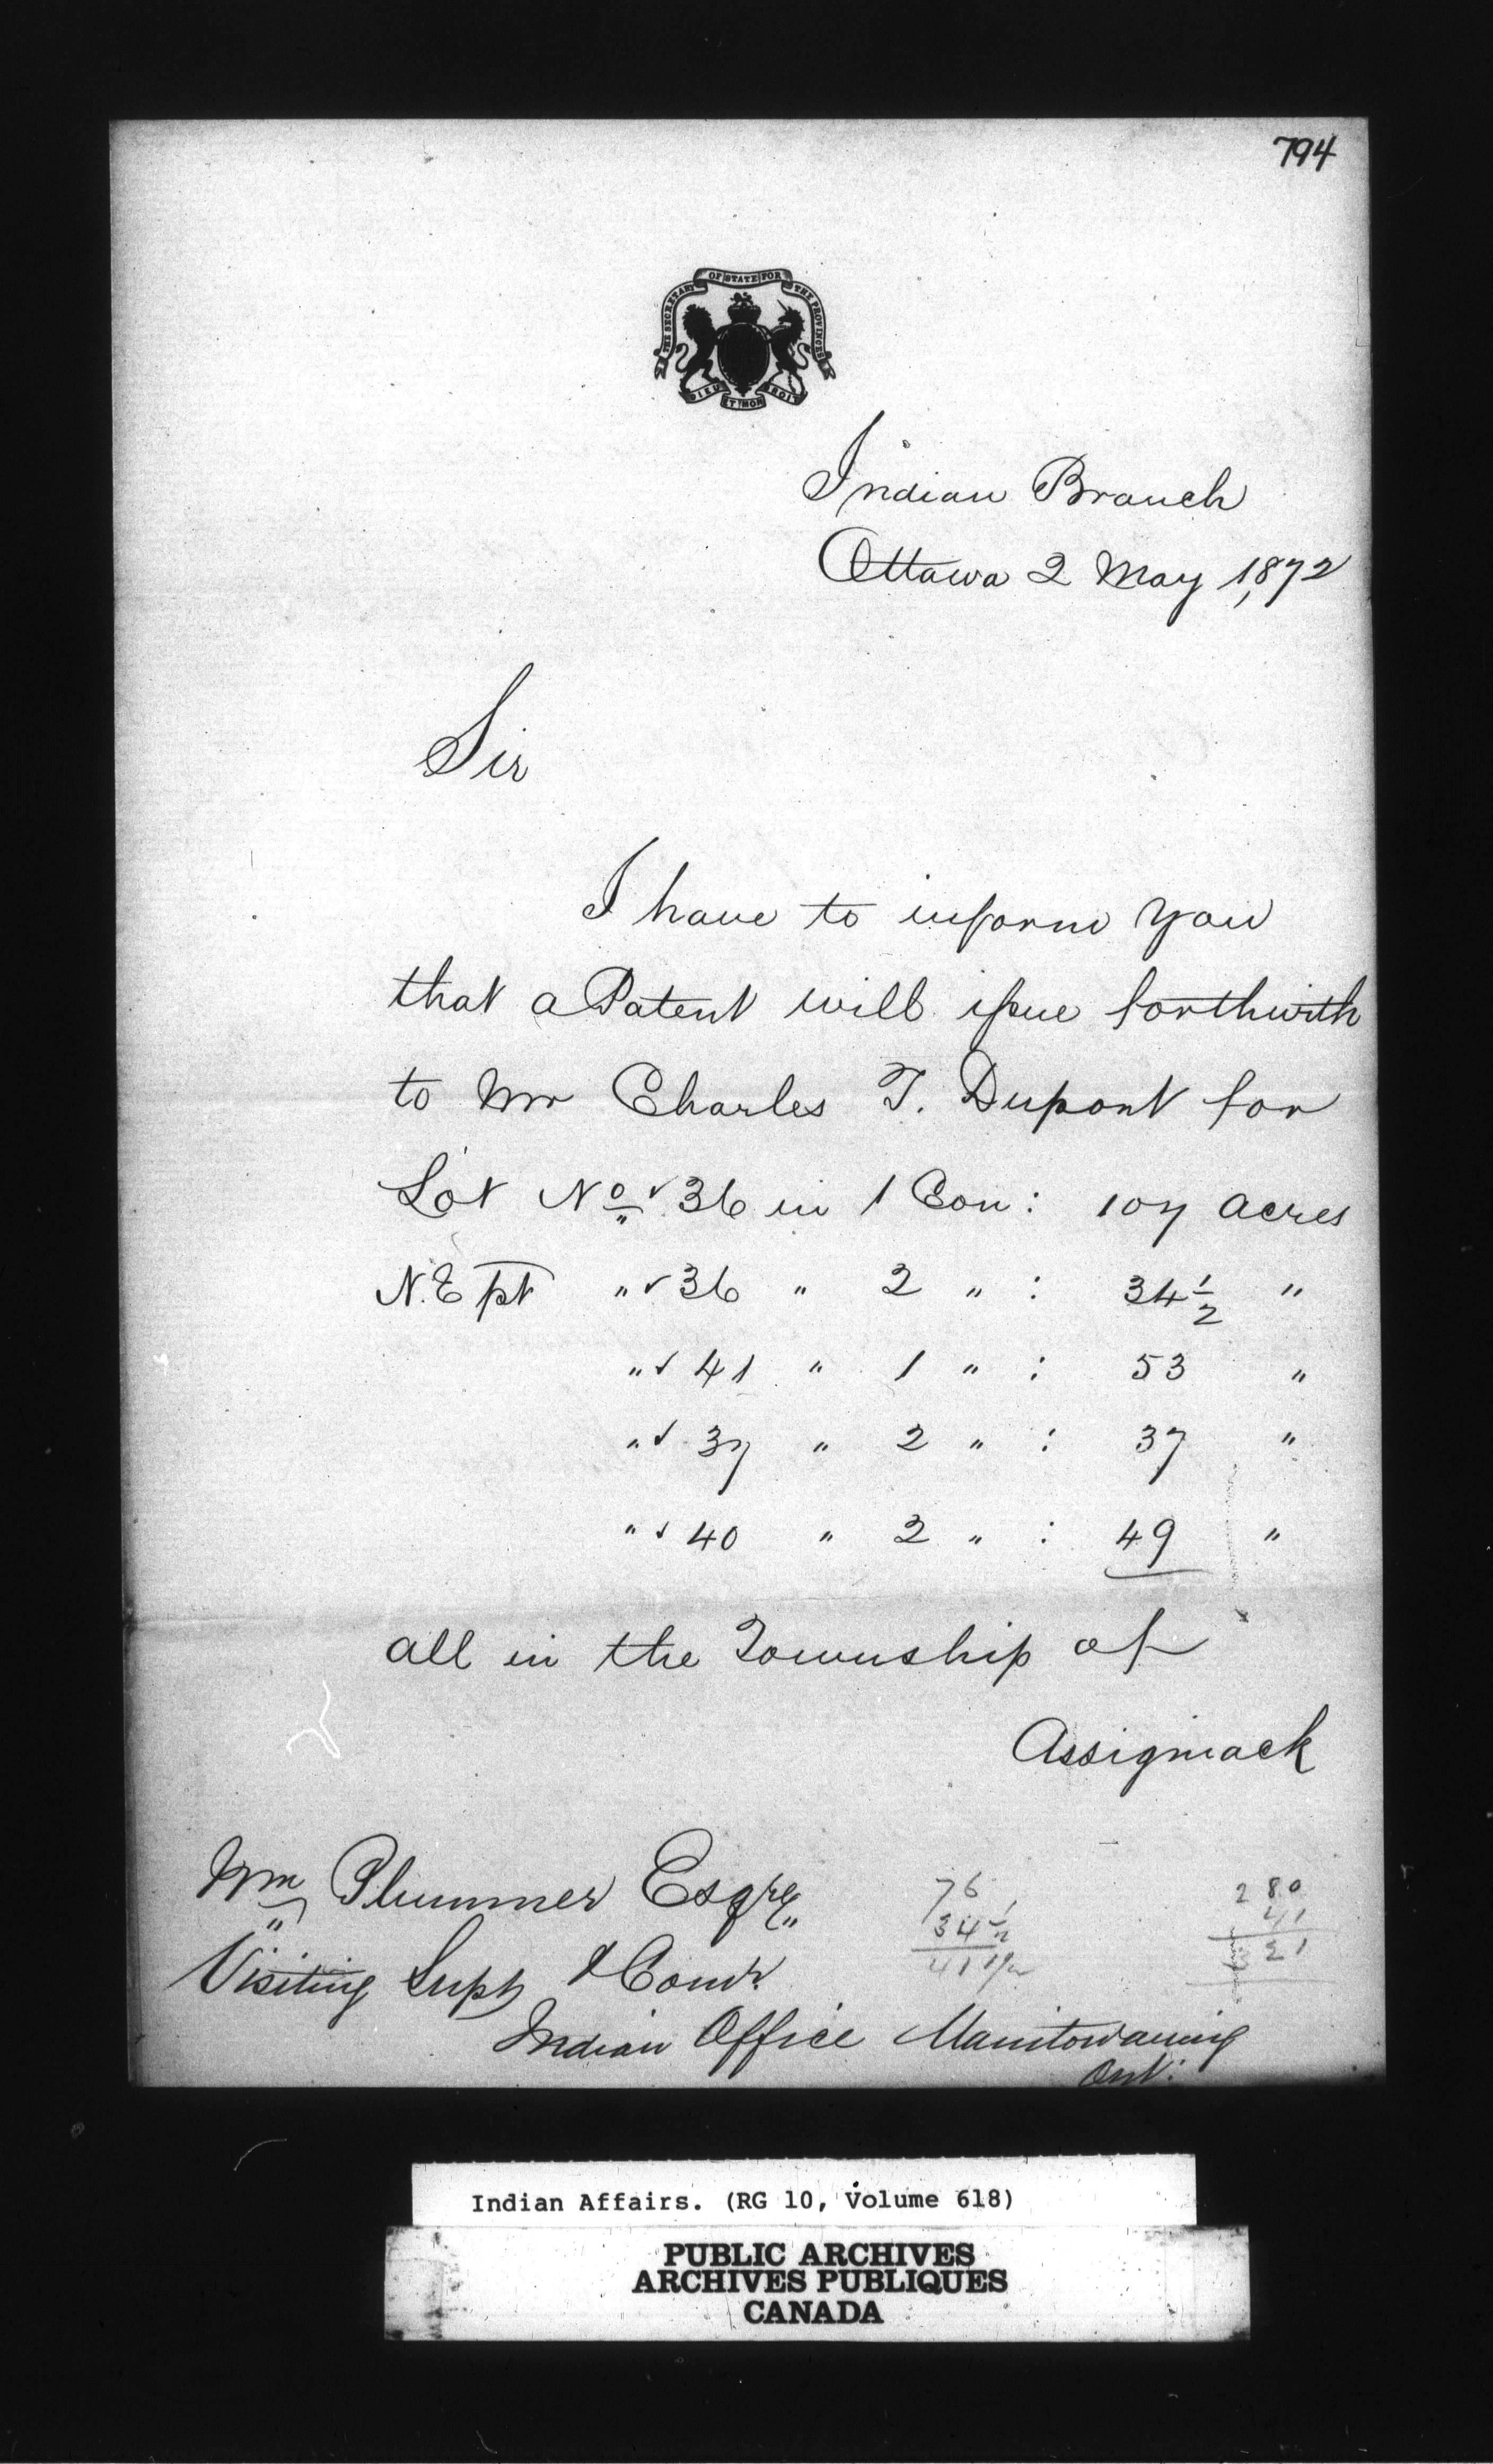 794
THE SECRETARY OF STATE FOR THE PROVINCES
DIEU ET MON DROIT
Indian Branch
Ottawa 2 May 1872
Sir
I have to inform you
that a Patent will issue forthwith
to Mr Charles T. Dupont for
Lot No ✓ 36 in 1 Con: 107 acres
N.E pt " ✓ 36 " 2 " : 34 1/2 "
" ✓ 41 " 1 " : 53 "
" ✓ 37 " 2 " : 37 "
" ✓ 40 " 2 " : 49 "
all in the Township of
Assiginack
Wm Plummer Esqre
Visiting Supt & Comr
Indian Office Manitowaning
Ont:
76
34 1/2
41 1/2
280
41
321
Indian Affairs. (RG 10, Volume 618)
PUBLIC ARCHIVES
ARCHIVES PUBLIQUES
CANADA